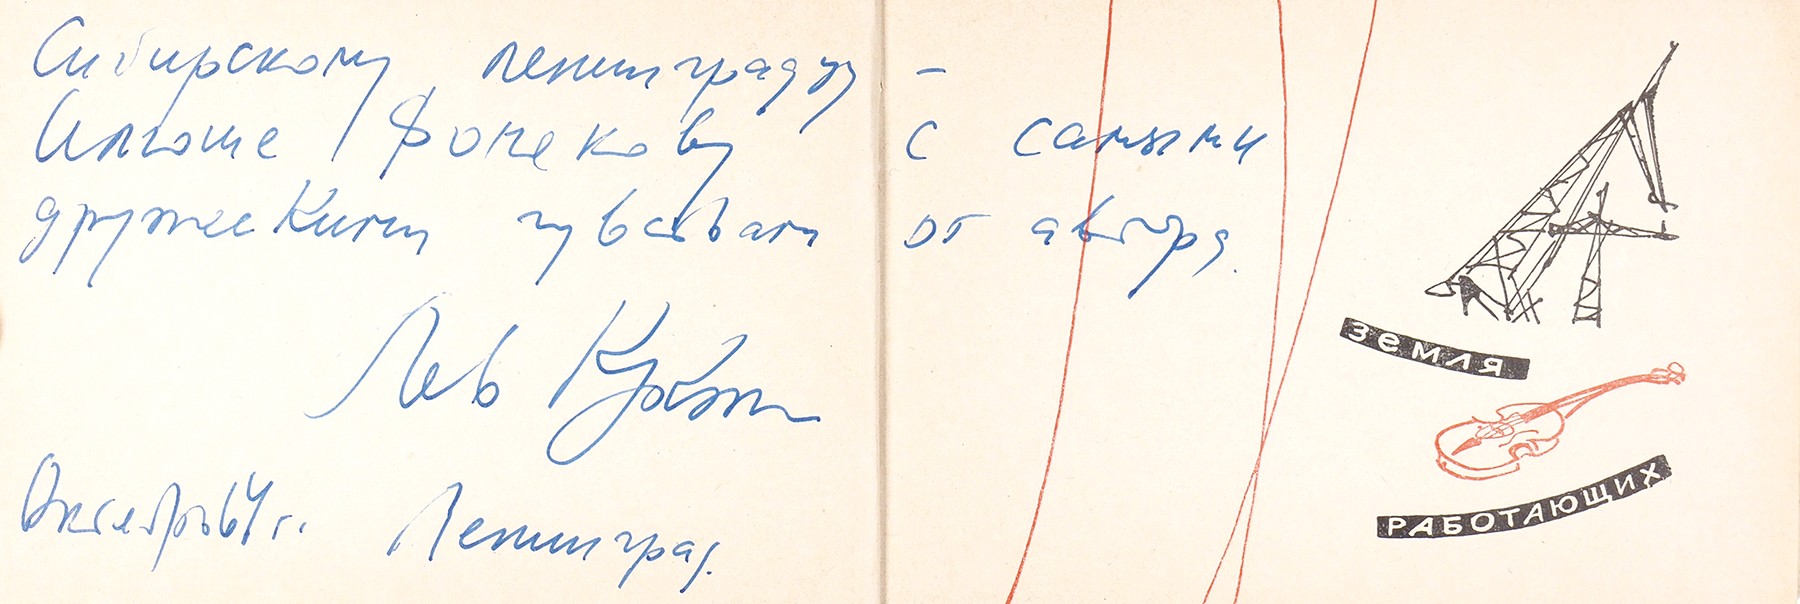 Сибирскому ленинградцу –
Илюше Фонякову с самыми
дружескими чувствами от автора.
Лев Куклин
Октябрь 64 г. Ленинград.
ЗЕМЛЯ
РАБОТАЮЩИХ